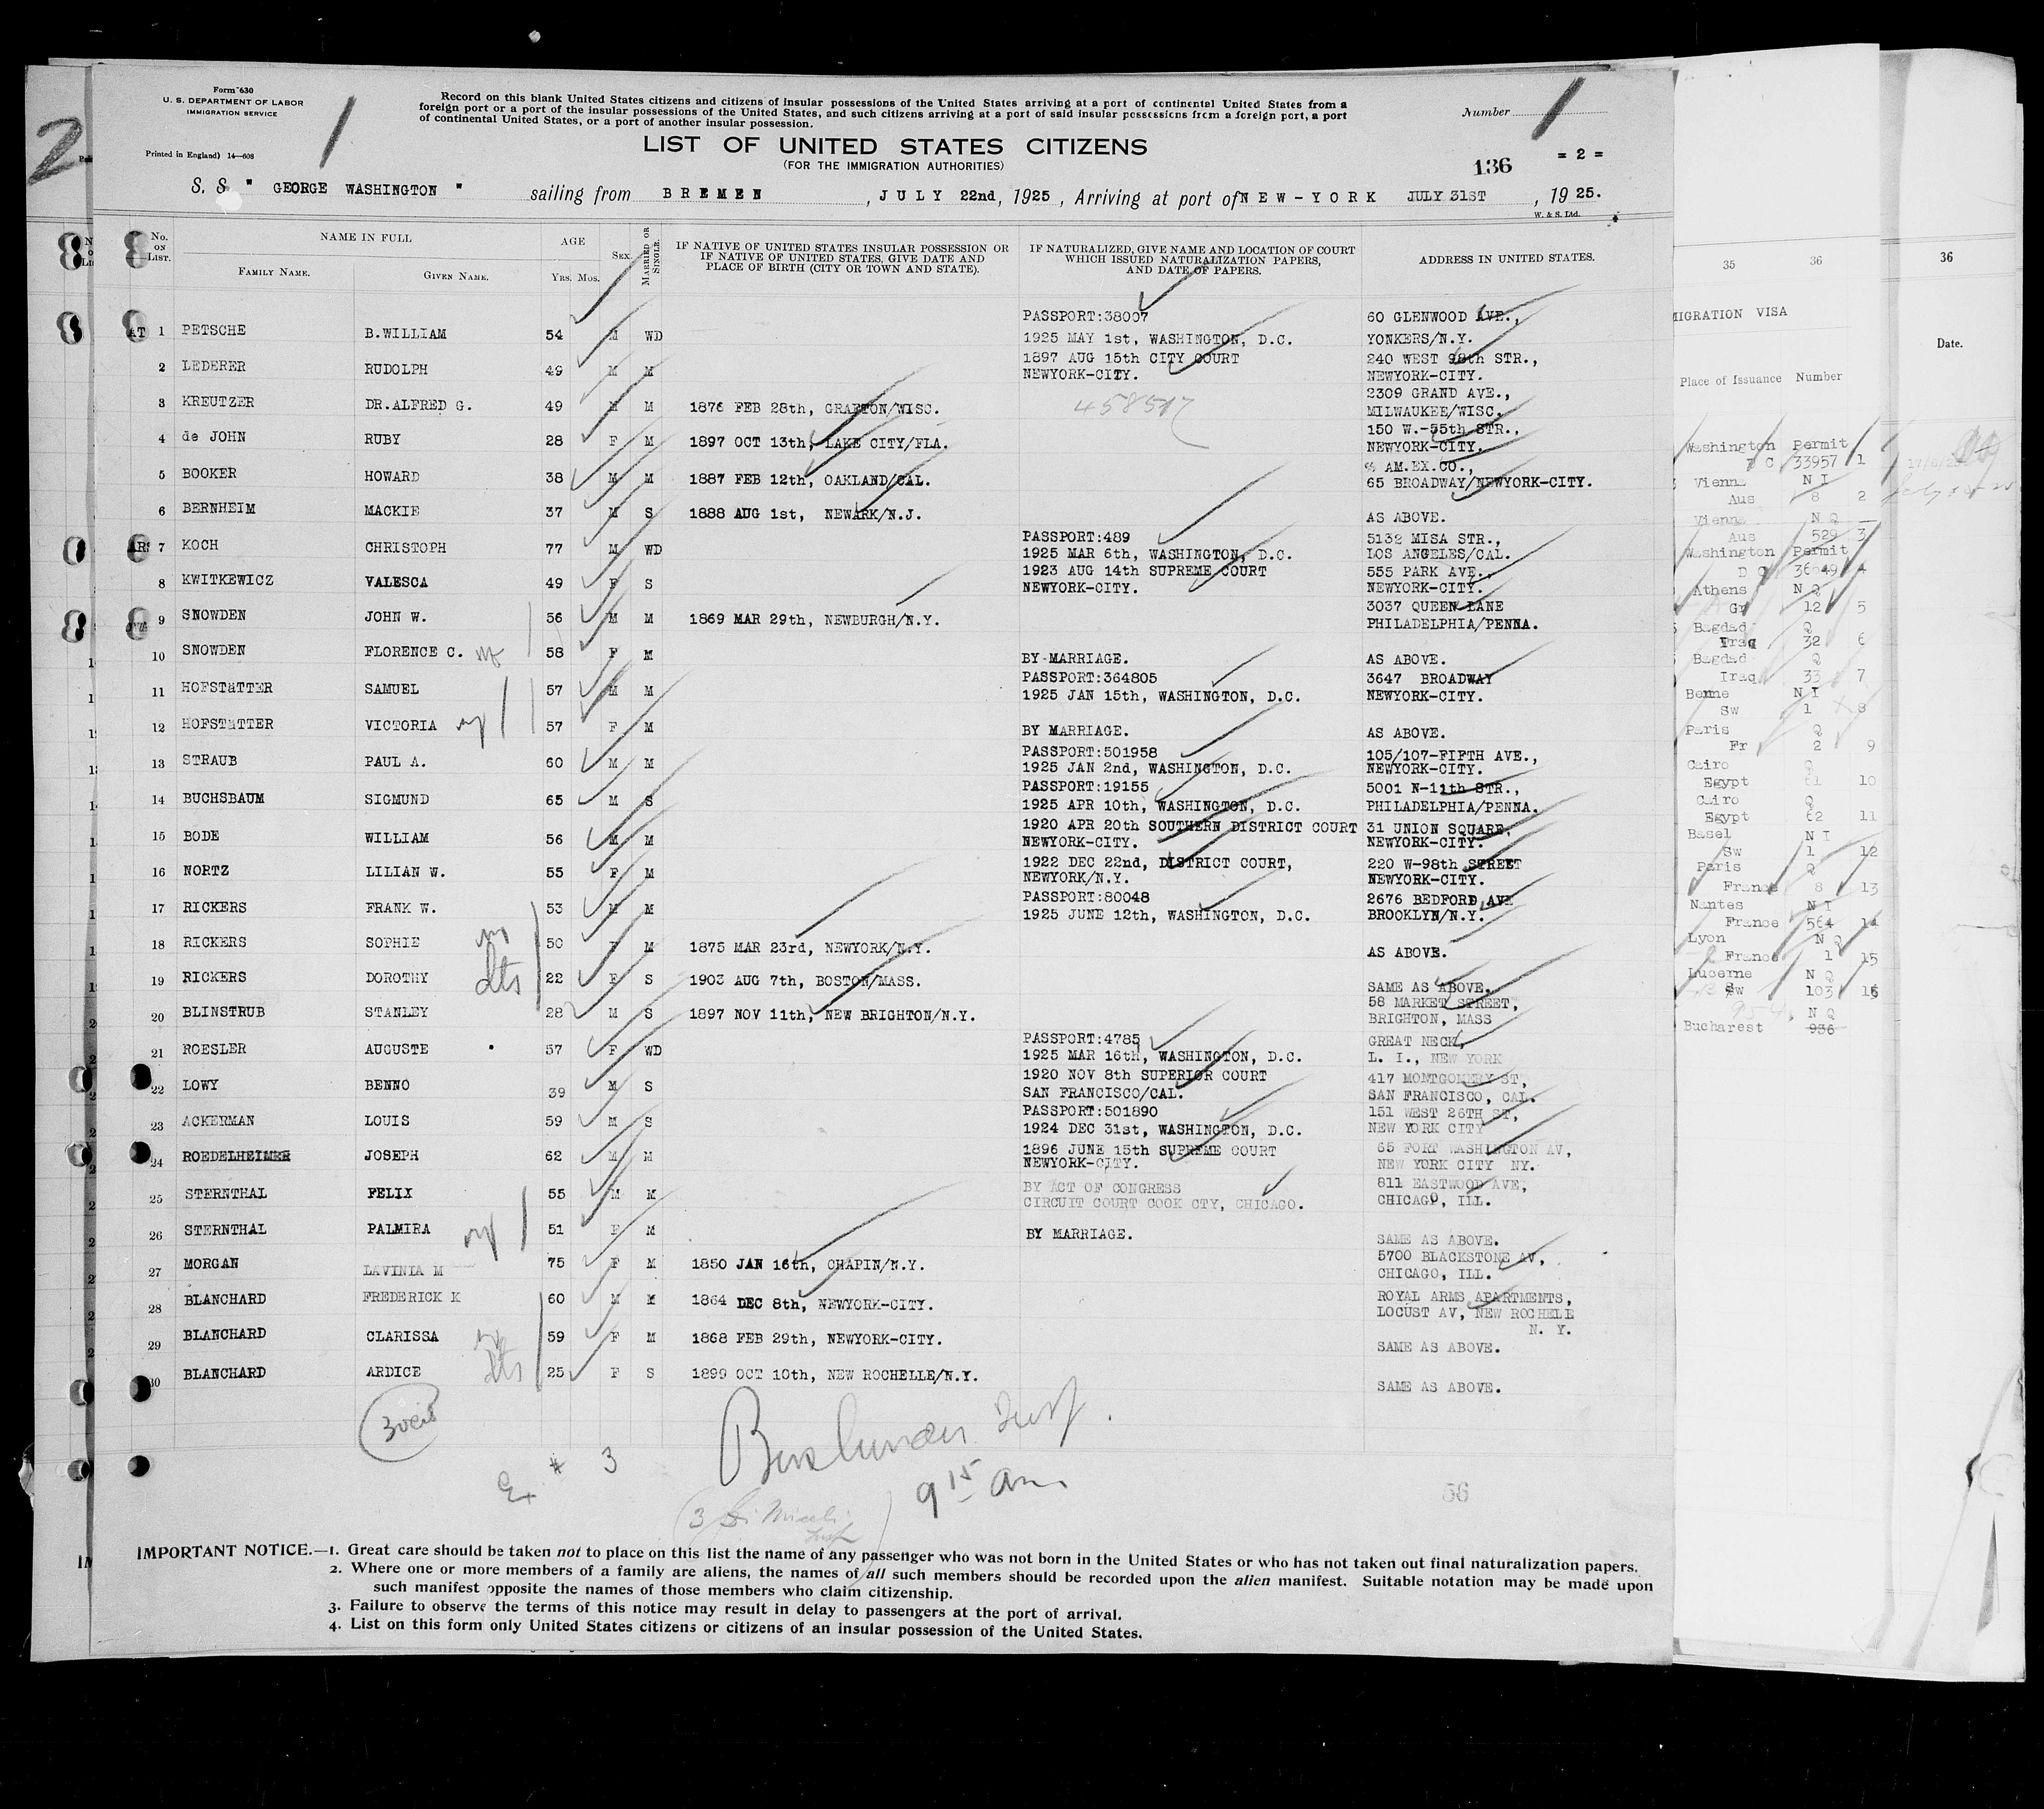 Form 630
U. S. DEPARTMENT OF LABOR
IMMIGRATION SERVICE
Printed in England) 14—608
2
1
Record on this blank United States citizens and citizens of insular possessions of the United States arriving at a port of continental United States from a
foreign port or a port of the insular possessions of the United States, and such citizens arriving at a port of said insular possessions from a foreign port, a port
of continental United States, or a port of another insular possession.
Number 1
LIST OF UNITED STATES CITIZENS
(FOR THE IMMIGRATION AUTHORITIES)
136 = 2 =
S. S. " GEORGE WASHINGTON " sailing from BREMEN, JULY 22nd, 1925, Arriving at port of NEW-YORK JULY 31ST, 1925.
W. & S. Ltd.
No. on List. NAME IN FULL AGE Sex. Married or Single. IF NATIVE OF UNITED STATES INSULAR POSSESSION OR IF NATIVE OF UNITED STATES, GIVE DATE AND PLACE OF BIRTH (CITY OR TOWN AND STATE). IF NATURALIZED, GIVE NAME AND LOCATION OF COURT WHICH ISSUED NATURALIZATION PAPERS, AND DATE OF PAPERS. ADDRESS IN UNITED STATES.
Family Name. Given Name. Yrs. Mos.
1 PETSCHE B.WILLIAM 54 M WD PASSPORT:38007 60 GLENWOOD AVE.,
1925 MAY 1st, WASHINGTON, D.C. YONKERS/N.Y.
2 LEDERER RUDOLPH 49 M M 1897 AUG 15th CITY COURT 240 WEST 98th STR.,
NEWYORK-CITY. NEWYORK-CITY.
3 KREUTZER DR.ALFRED G. 49 M M 1876 FEB 28th, GRAFTON/WISC. 458517 2309 GRAND AVE.,
MILWAUKEE/WISC.
4 de JOHN RUBY 28 F M 1897 OCT 13th, LAKE CITY/FLA. 150 W.-55th STR.,
NEWYORK-CITY.
5 BOOKER HOWARD 38 M M 1887 FEB 12th, OAKLAND/CAL. % AM.EX.CO.,
65 BROADWAY/NEWYORK-CITY.
6 BERNHEIM MACKIE 37 M S 1888 AUG 1st, NEWARK/N.J. AS ABOVE.
7 KOCH CHRISTOPH 77 M WD PASSPORT:489 5132 MISA STR.,
1925 MAR 6th, WASHINGTON, D.C. LOS ANGELES/CAL.
8 KWITKEWICZ VALESCA 49 F S 1923 AUG 14th SUPREME COURT 555 PARK AVE.,
NEWYORK-CITY. NEWYORK-CITY.
9 SNOWDEN JOHN W. 56 M M 1869 MAR 29th, NEWBURGH/N.Y. 3037 QUEEN LANE
PHILADELPHIA/PENNA.
10 SNOWDEN FLORENCE C. 58 F M BY MARRIAGE. AS ABOVE.
11 HOFSTäTTER SAMUEL 57 M M PASSPORT:364805 3647 BROADWAY
1925 JAN 15th, WASHINGTON, D.C. NEWYORK-CITY.
12 HOFSTäTTER VICTORIA 57 F M BY MARRIAGE. AS ABOVE.
13 STRAUB PAUL A. 60 M M PASSPORT:501958 105/107-FIFTH AVE.,
1925 JAN 2nd, WASHINGTON, D.C. NEWYORK-CITY.
14 BUCHSBAUM SIGMUND 65 M S PASSPORT:19155 5001 N-11th STR.,
1925 APR 10th, WASHINGTON, D.C. PHILADELPHIA/PENNA.
15 BODE WILLIAM 56 M M 1920 APR 20th SOUTHERN DISTRICT COURT 31 UNION SQUARE,
NEWYORK-CITY. NEWYORK-CITY.
16 NORTZ LILIAN W. 55 F M 1922 DEC 22nd, DISTRICT COURT, 220 W-98th STREET
NEWYORK/N.Y. NEWYORK-CITY.
17 RICKERS FRANK W. 53 M M PASSPORT:80048 2676 BEDFORD AVE
1925 JUNE 12th, WASHINGTON, D.C. BROOKLYN/N.Y.
18 RICKERS SOPHIE 50 F M 1875 MAR 23rd, NEWYORK/N.Y. AS ABOVE.
19 RICKERS DOROTHY dts 22 F S 1903 AUG 7th, BOSTON/MASS. SAME AS ABOVE.
20 BLINSTRUB STANLEY 28 M S 1897 NOV 11th, NEW BRIGHTON/N.Y. 58 MARKET STREET,
BRIGHTON, MASS
21 ROESLER AUGUSTE 57 F WD PASSPORT:4785 GREAT NECK,
1925 MAR 16th, WASHINGTON, D.C. L. I., NEW YORK
22 LOWY BENNO 39 M S 1920 NOV 8th SUPERIOR COURT 417 MONTGOMERY ST,
SAN FRANCISCO/CAL. SAN FRANCISCO, CAL.
23 ACKERMAN LOUIS 59 M S PASSPORT:501890 151 WEST 26TH ST,
1924 DEC 31st, WASHINGTON, D.C. NEW YORK CITY
24 ROEDELHEIMER JOSEPH 62 M M 1896 JUNE 15th SUPREME COURT 65 FORT WASHINGTON AV,
NEWYORK-CITY. NEW YORK CITY NY.
25 STERNTHAL FELIX 55 M M BY ACT OF CONGRESS 811 EASTWOOD AVE,
CIRCUIT COURT COOK CTY, CHICAGO. CHICAGO, ILL.
26 STERNTHAL PALMIRA 51 F M BY MARRIAGE. SAME AS ABOVE.
27 MORGAN LAVINIA M 75 F M 1850 JAN 16th, CHAPIN/N.Y. 5700 BLACKSTONE AV,
CHICAGO, ILL.
28 BLANCHARD FREDERICK K 60 M M 1864 DEC 8th, NEWYORK-CITY. ROYAL ARMS APARTMENTS,
LOCUST AV, NEW ROCHELL
N. Y.
29 BLANCHARD CLARISSA 59 F M 1868 FEB 29th, NEWYORK-CITY. SAME AS ABOVE.
30 BLANCHARD ARDICE dts 25 F S 1899 OCT 10th, NEW ROCHELLE/N.Y. SAME AS ABOVE.
# 3
9 15 am
56
IMPORTANT NOTICE.—1. Great care should be taken not to place on this list the name of any passenger who was not born in the United States or who has not taken out final naturalization papers.
2. Where one or more members of a family are aliens, the names of all such members should be recorded upon the alien manifest. Suitable notation may be made upon
such manifest opposite the names of those members who claim citizenship.
3. Failure to observe the terms of this notice may result in delay to passengers at the port of arrival.
4. List on this form only United States citizens or citizens of an insular possession of the United States.
35 36 36
MIGRATION VISA
Date.
Place of Issuance Number
Washington Permit
D C 33957 1
Vienna N I
Aus 8 2
Vienna N Q
Aus 529 3
Washington Permit
D C
Athens N Q
Gr 12 5
Bagdad Q
Iraq 32 6
Bagdad Q
Iraq 33 7
Berne N I
Sw 1 8
Paris Q
Fr 2 9
Cairo Q
Egypt 61 10
Cairo Q
Egypt 62 11
Basel N I
Sw 1 12
Paris Q
France 8 13
Nantes N I
France 564 14
Lyon N Q
France 1 15
Lucerne N Q
Sw 103 16
N Q
Bucharest 936